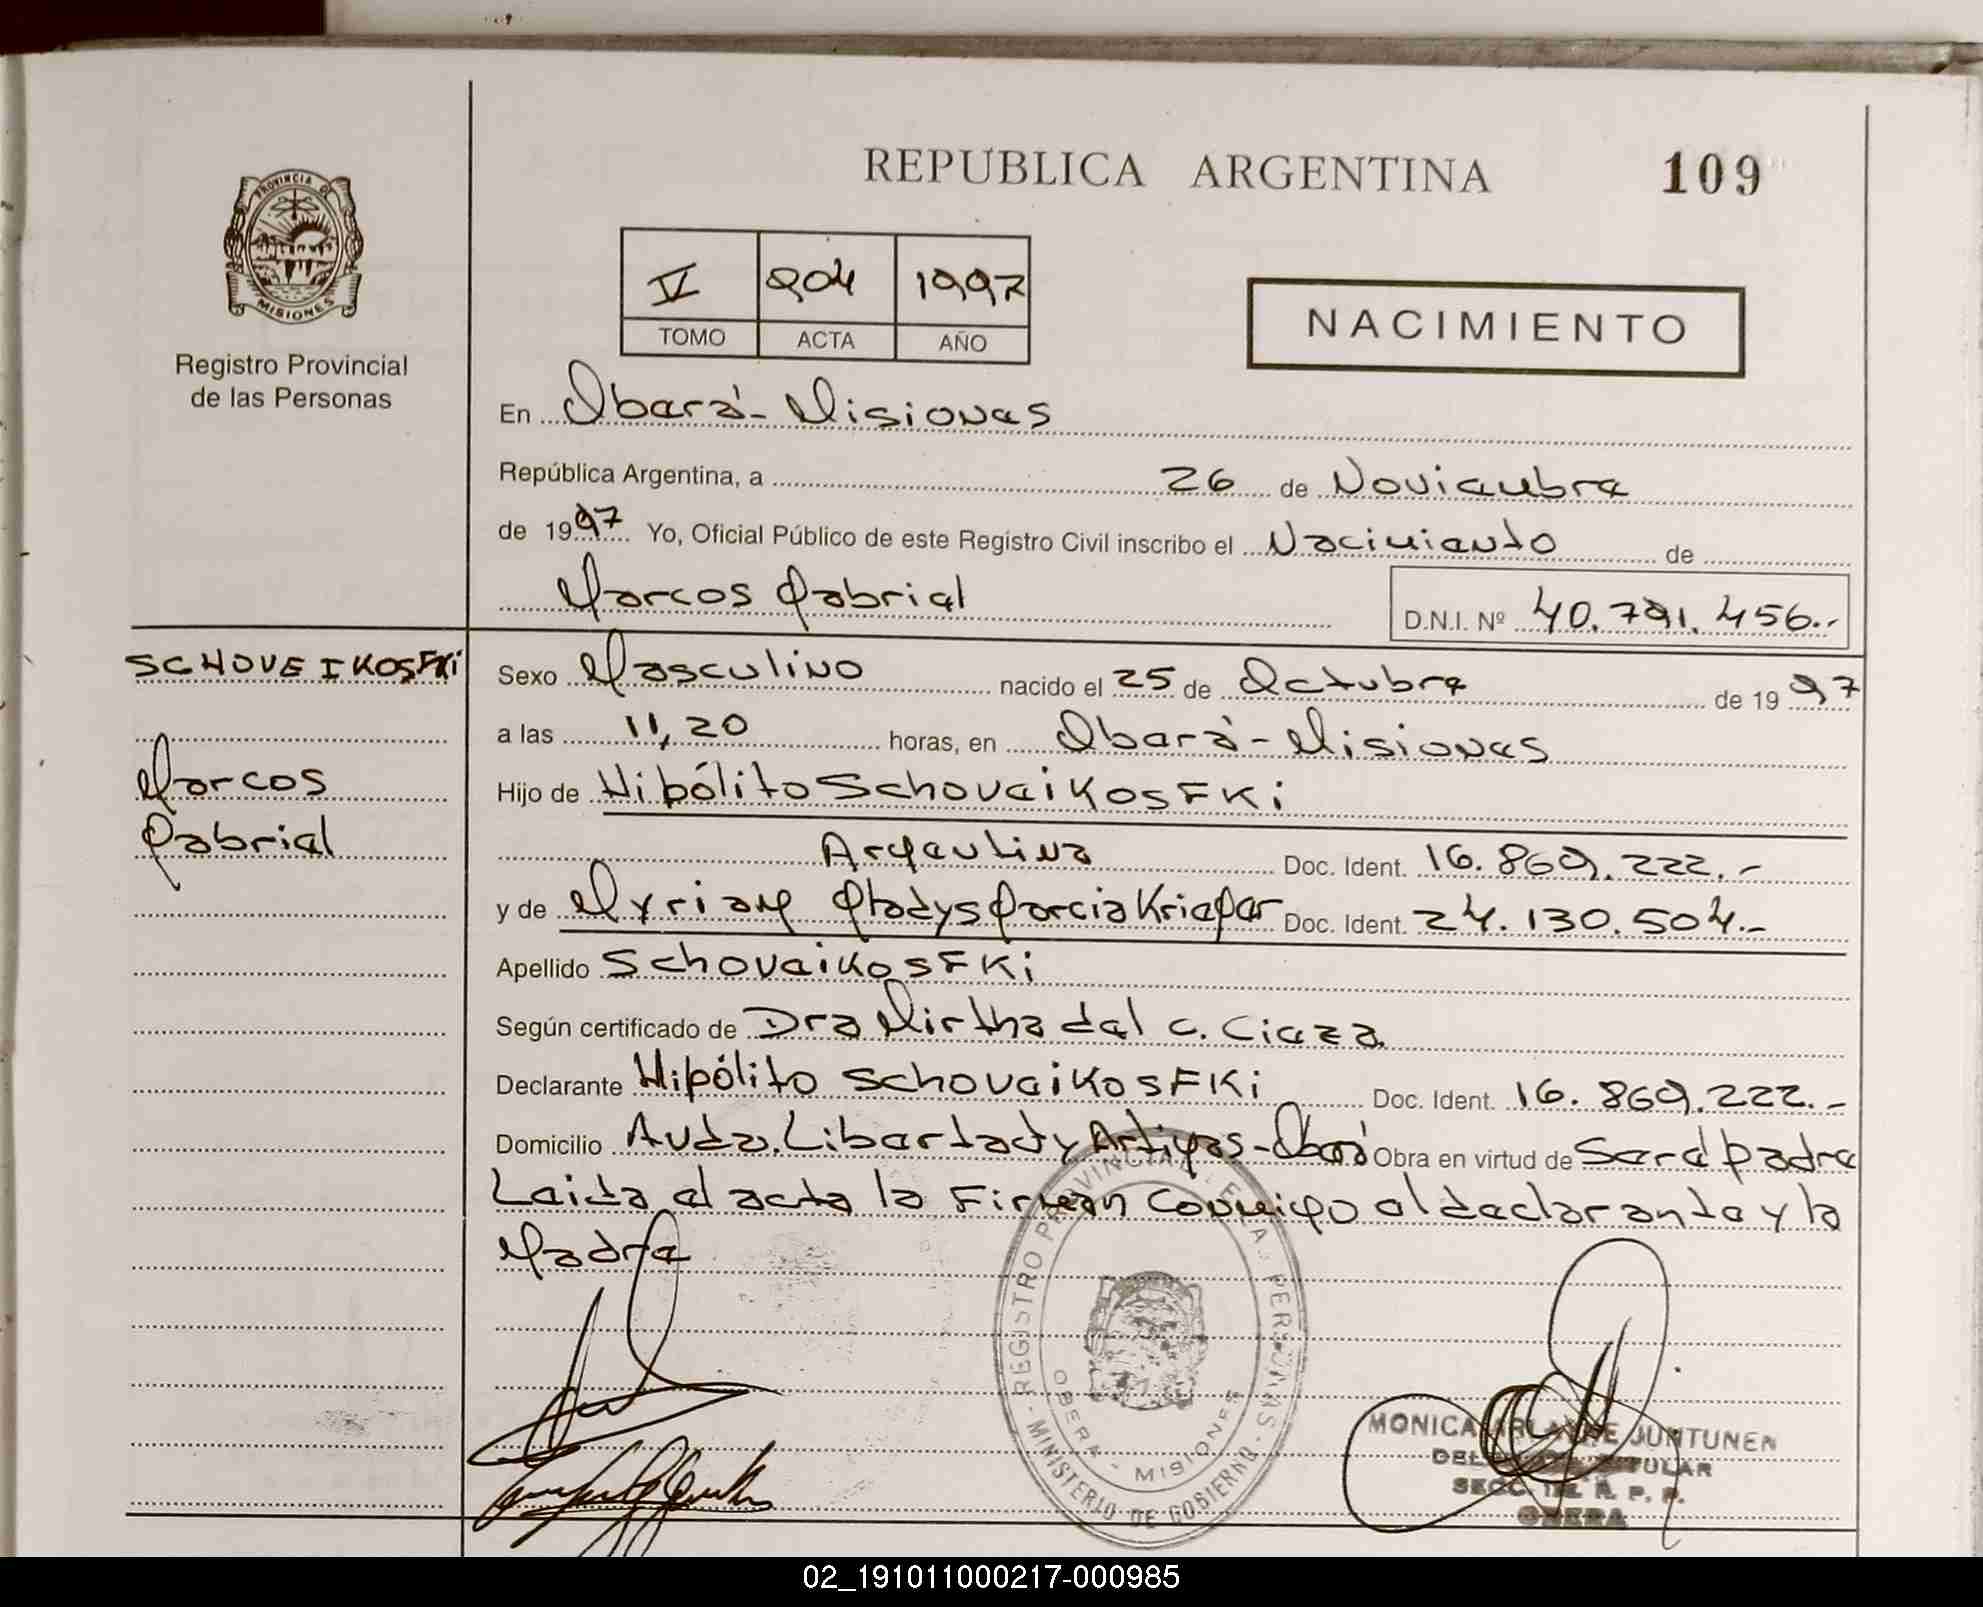 REPUBLICA ARGENTINA 109
PROVINCIA DE
MISIONES
Registro Provincial
de las Personas
V 904 1997
TOMO ACTA AÑO
NACIMIENTO
En Oberá - Misiones
República Argentina, a 26 de Noviembre
de 1997 Yo, Oficial Público de este Registro Civil inscribo el Nacimiento de
Marcos Gabriel D.N.I. Nº 40.791.456.-
SCHOVEIKOSFKi
Marcos
Gabriel
Sexo Masculino nacido el 25 de Octubre de 1997
a las 11,20 horas, en Oberá - Misiones
Hijo de Hipólito SchoveiKosFKi
Argentina Doc. Ident. 16.869.222.-
y de Myriam Gladys Garcia Krieger Doc. Ident. 24.130.504.-
Apellido SchoveiKosFKi
Según certificado de Dra Mirtha del C. Cieza
Declarante Hipólito SchoveiKosFKi Doc. Ident. 16.869.222.-
Domicilio Avda. Libertad y Artigas - Oberá Obra en virtud de Ser el padre
Leida el acta la Firman Conmigo el declarante y la
Madre
REGISTRO PROVINCIAL DE LAS PERSONAS
OBERA - MISIONES
- MINISTERIO DE GOBIERNO -
MONICA ARLANDE JUNTUNEN
TITULAR
R. P. P.
OBERA
02_191011000217-000985